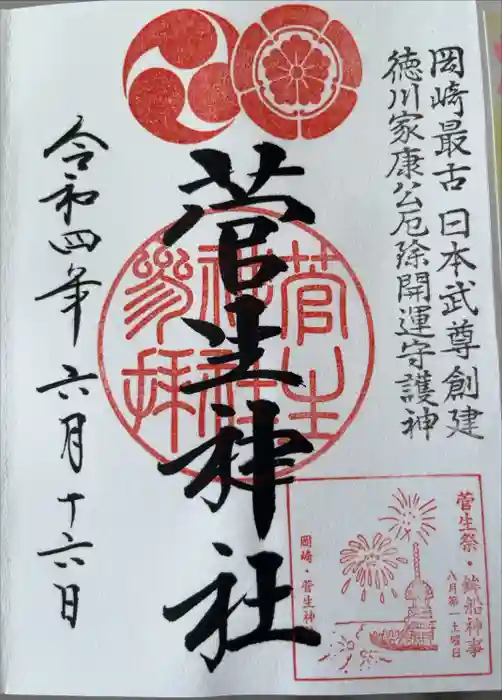 岡崎最古 日本武尊創建
徳川家康公厄除開運守護神
菅生神社
令和四年 六月十六日
菅生祭・鉾船神事
八月第一土曜日
岡崎・菅生神